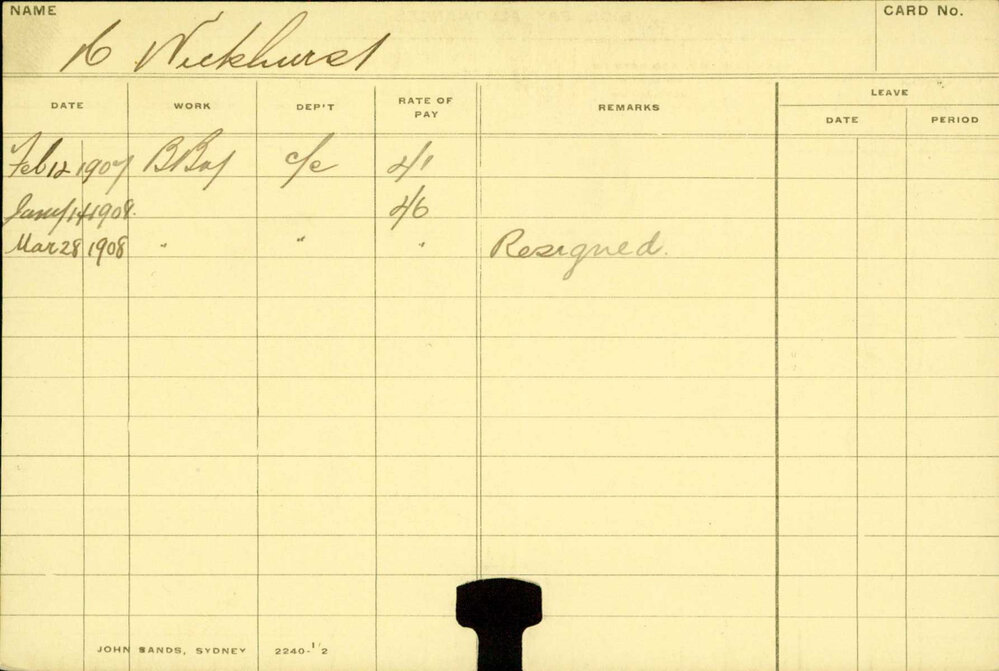 NAME
CARD No.
Wickhurst
DATE WORK DEP'T RATE OF PAY REMARKS LEAVE
DATE PERIOD
Feb 12 1907 B Boy c/c 4/1
Jany 14 1908. 4/6
Mar 28 1908 " " " Resigned.
JOHN SANDS, SYDNEY 2240-1/2